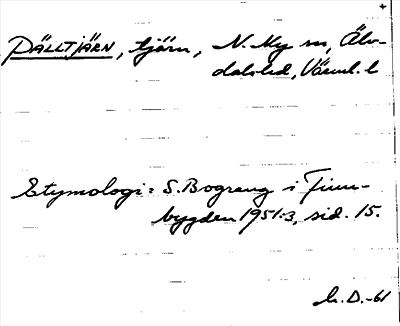 DÄLLTJÄRN, tjärn, N. Ny sn, Älv-
dals hd, Värml. l
Etymologi: S. Bograng i Finn-
bygden 1951:3, sid. 15.
h. D. -61